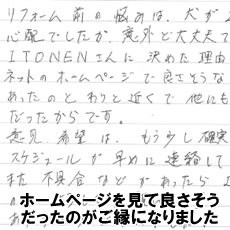 リフォーム前の悩みは、犬が
心配でしたが、意外と大丈夫で
ITONENさんに決めた理由
ネットのホームページで良さそうな
あったのとわりと近くで他にも
だったからです。
意見 希望は、もう少し確実
スケジュールが早めに連絡して
また不具合などがあったら
ホームページを見て良さそう
だったのがご縁になりました